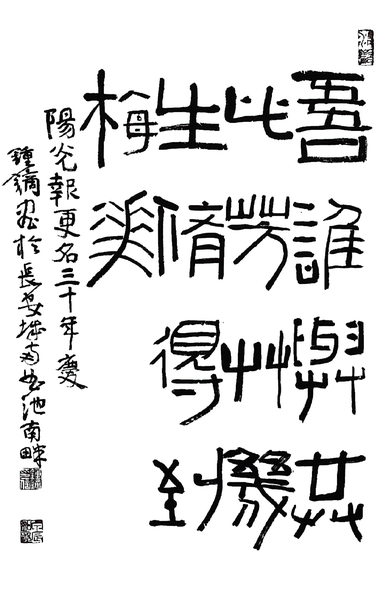 吾誰與共
比芳艸幾
生脩得到
梅花
陽光報更名三十年慶
鍾鏑書於長安城南曲池南畔